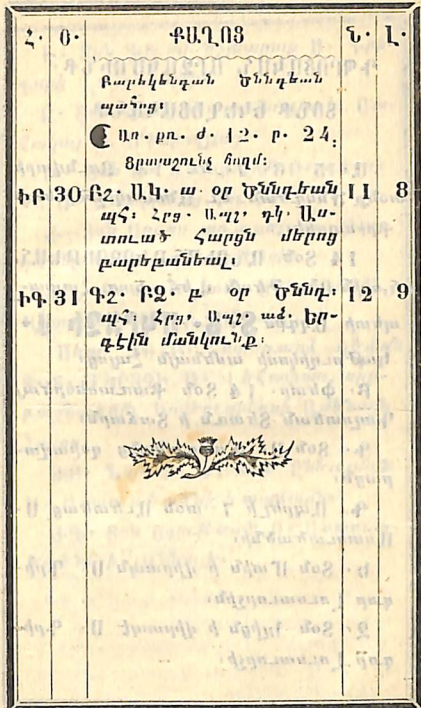 Հ· Օ· ՔԱՂՈՑ Ն· Լ·
Բարեկենդան Ծննդեան
պահոց։
Առ· քռ· ժ· 12· ր· 24։
Ցրտաշունչ հողմ։
ԻԲ 30 ԲՇ· Ա.Կ· ա օր Ծննդեան 11 8
պՀ։ Հրց· Ա.պշ՛ դկ· Աս-
տուած Հարցն մերոց
բարեբանեալ։
ԻԳ 31 ԳՇ· ԲՁ· բ օր Ծննդ։ 12 9
պՀ։ Հրց· Ա.պշ՛ աձ· Եր-
գէին մանկունք։